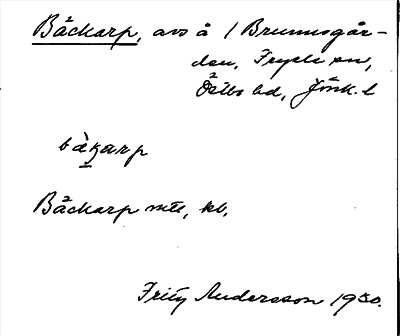 Bäckarp, avs å / Brunnsgår-
den, Fryele sn,
Östbo hd, Jönk. l
bàkarp
Bäckarp mtl, kb,
Fritz Andersson 1930.